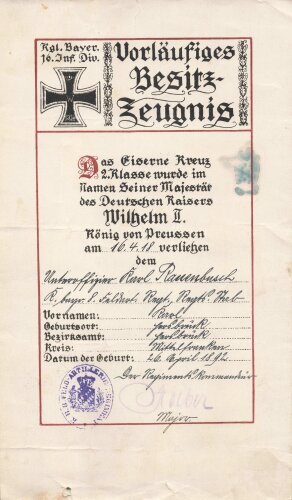 Kgl. Bayer.
16. Inf. Div.
Vorläufiges
Besitz-
Zeugnis
Das Eiserne Kreuz
2. Klasse wurde im
Namen Seiner Majestät
des Deutschen Kaisers
Wilhelm II.
König von Preussen
am 16.4.18 verliehen
dem
Unteroffizier Karl Rauenbusch
K. bayr. 8. Feldart. Regt., Regts. Stab
Vornamen: Karl
Geburtsort:
Bezirksamt:
Kreis: Mittelfranken
Datum der Geburt: 26. April 1892
Der Regiments Kommandeur
Major